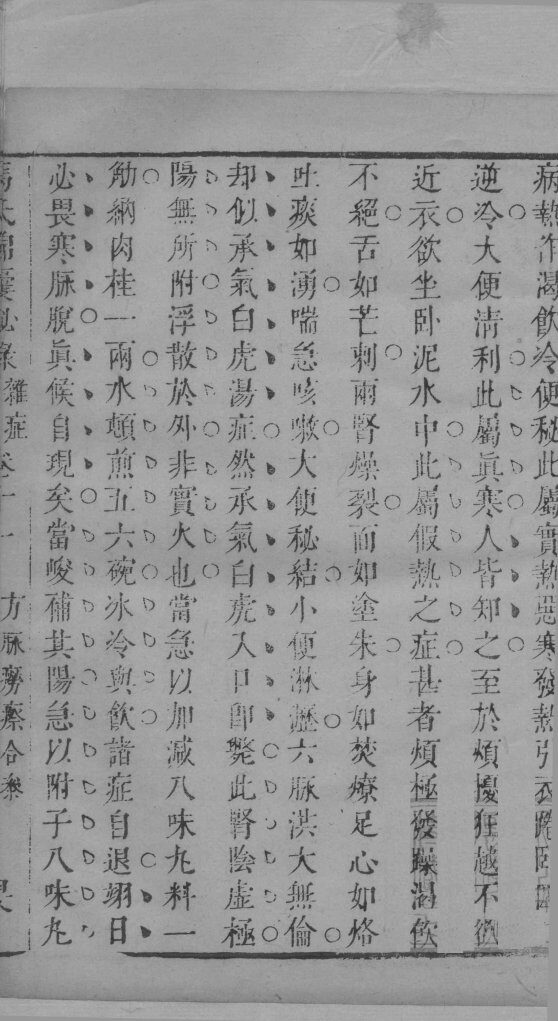 病熱作渴飲冷便秘此屬實熱惡寒發熱引衣踡臥四
逆冷大便清利此屬眞寒人皆知之至於煩擾狂越不欲
近衣欲坐臥泥水中此屬假熱之症甚者煩極發躁渴飲
不絕舌如芒刺兩脣燥裂面如塗朱身如焚燎足心如烙
吐痰如湧喘急咳嗽大便秘結小便淋瀝六脉洪大無倫
却似承氣白虎湯症然承氣白虎入口卽斃此腎陰虛極
陽無所附浮散於外非實火也當急以加減八味丸料一
觔納肉桂一兩水頓煎五六碗冰冷與飲諸症自退翊日
必畏寒脉脫眞候自現矣當峻補其陽急以附子八味丸
馮氏錦囊秘錄雜症卷十一 方脉癆瘵合參